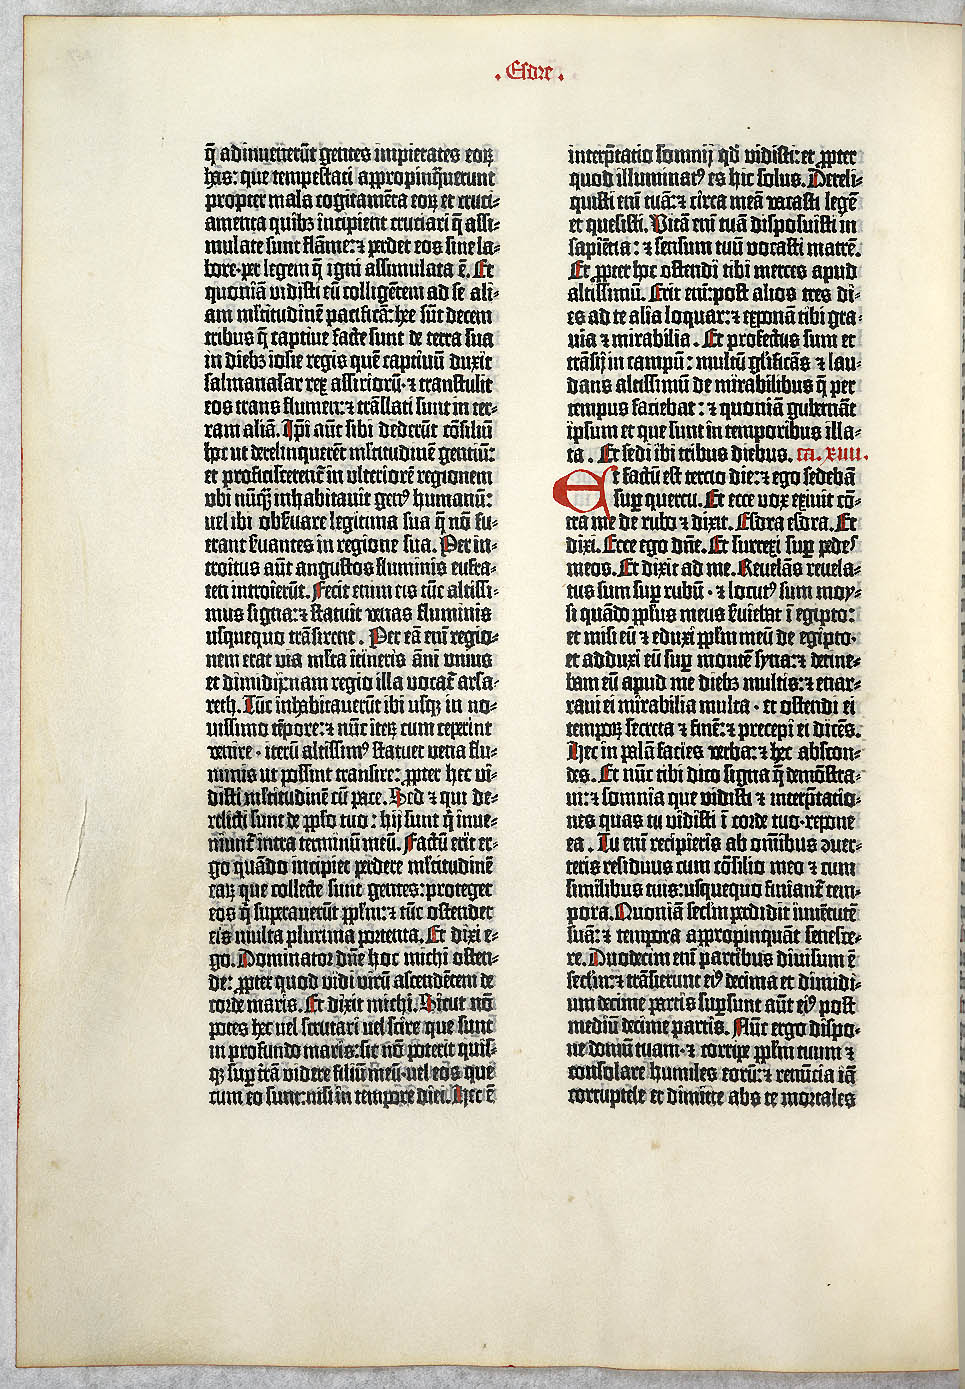 . Esdre .
q̄ adinuenerūt gentes impietates eoꝝ
has: que tempestati appropinq̄uerunt
propter mala cogitamēta eoꝝ et cruci-
amenta quibꝫ īcipient cruciari q̄ assi-
mulate sunt flāme: ⁊ ꝑdet eos sine la-
bore· per legem q̄ igni assimulata ē. Et
quoniā vidisti eū colligētem ad se ali-
am ml̄titudinē pacificā: hee sūt decem
tribus q̄ captiue facte sunt de terra sua
in diebꝫ iosie regis quē captiuū duxit
salmanasar rex assirioꝝ· ⁊ transtulit
eos trans flumen: ⁊ trāslati sunt in ter-
ram aliā. Ip̄i aūt sibi dederūt cōsiliū
hoc ut derelinquerēt ml̄titudinē gentiū:
et proficiscerent̄ in ulteriorē regionem
vbi nūq̄ inhabitauit genꝰ humanū:
uel ibi obseruare legitima sua q̄ nō fu-
erant ſuantes in regione sua. Per in-
troitus aūt angustos fluminis eufra-
ten introierūt. Fecit enim eis tūc altissi-
mus signa: ⁊ statuit venas fluminis
usquequo trāsirent. Per eā enī regio-
nem erat via ml̄ta itineris āni unius
et dimidij: nam regio illa vocat̄ arsa-
reth. Tūc inhabitauerūt ibi usqꝫ in no-
uissimo tēpore: ⁊ nūc iteꝝ cum ceperint
venire· iterū altissimꝰ statuet venas flu-
minis ut possint transire: ꝓpter hec vi-
disti ml̄titudinē cū pace. Sed ⁊ qui de-
relicti sunt de ppl̄o tuo: hij sunt q̄ inue-
niunt̄ intra terminū meū. Factū erit er-
go quādo incipiet ꝑdere ml̄titudinē
eaꝝ que collecte sunt gentes: proteget
eos q̄ suꝑauerūt ppl̄m: ⁊ tūc ostendet
eis multa plurima portenta. Et dixi e-
go. Dominator dn̄e hoc michi osten-
de: ꝓpter quod vidi virū ascendētem de
corde maris. Et dixit michi. Sicut nō
potes hec uel scrutari uel scire que sunt
in profundo maris: sic nō poterit quis-
qꝫ suꝑ terrā videre filiū meū· uel eos que
cum eo sunt: nisi in tempore diei. Hec ē
interp̄tatio somnij qd̄ vidisti: et ꝓpter
quod illuminatꝰ es hic solus. Dereli-
quisti enī tuā: ⁊ circa meā vacasti legē
et quesisti. Vitā enī tuā disposuisti in
sapiētia: ⁊ sensum tuū vocasti matrē.
Et ꝓpter hoc ostendi tibi merces apud
altissimū. Erit enī: post alios tres di-
es ad te alia loquar: ⁊ exponā tibi gra-
uia ⁊ mirabilia. Et profectus sum et
trāsij in campū: multū gl̄ificās ⁊ lau-
dans altissimū de mirabilibus q̄ per
tempus faciebat: ⁊ quoniā gubernat
ipsum et que sunt in temporibus illa-
ta. Et sedi ibi tribus diebus. ca. xiiii.
Et factū est tercio die: ⁊ ego sedebā
suꝑ quercu. Et ecce vox exiuit cō-
tra me de rubo ⁊ dixit. Esdra esdra. Et
dixi. Ecce ego dn̄e. Et surrexi suꝑ pedes
meos. Et dixit ad me. Reuelās reuela-
tus sum suꝑ rubū· ⁊ locutꝰ sum moy-
si quādo ppl̄us meus ſuiebat ī egipto:
et misi eū ⁊ eduxi ppl̄m meū de egipto·
et adduxi eū suꝑ montē syna: ⁊ detine-
bam eū apud me diebꝫ multis: ⁊ enar-
raui ei mirabilia multa· et ostendi ei
tempoꝝ secreta ⁊ finē: ⁊ precepi ei dicēs.
Hec in palā facies verba: ⁊ hec abscon-
des. Et nūc tibi dico signa q̄ demōstra-
ui: ⁊ somnia que vidisti ⁊ interp̄tatio-
nes quas tu vidisti ī corde tuo· repone
ea. Tu enī recipieris ab om̄ibus ↄuer-
teris residuus cum cōsilio meo ⁊ cum
similibus tuis: usquequo finiant̄ tem-
pora. Quoniā secl̄m ꝑdidit iuuētutē
suā: ⁊ tempora appropinquāt senesce-
re. Duodecim enī partibus diuisum ē
secl̄m: ⁊ trāsierunt eiꝰ decima et dimidi-
um decime partis suꝑsunt aūt eiꝰ post
mediū decime partis. Nūc ergo dispo-
ne domū tuam· ⁊ corripe ppl̄m tuum ⁊
consolare humiles eorū: ⁊ renūcia iā
corruptele et dimitte abs te mortales